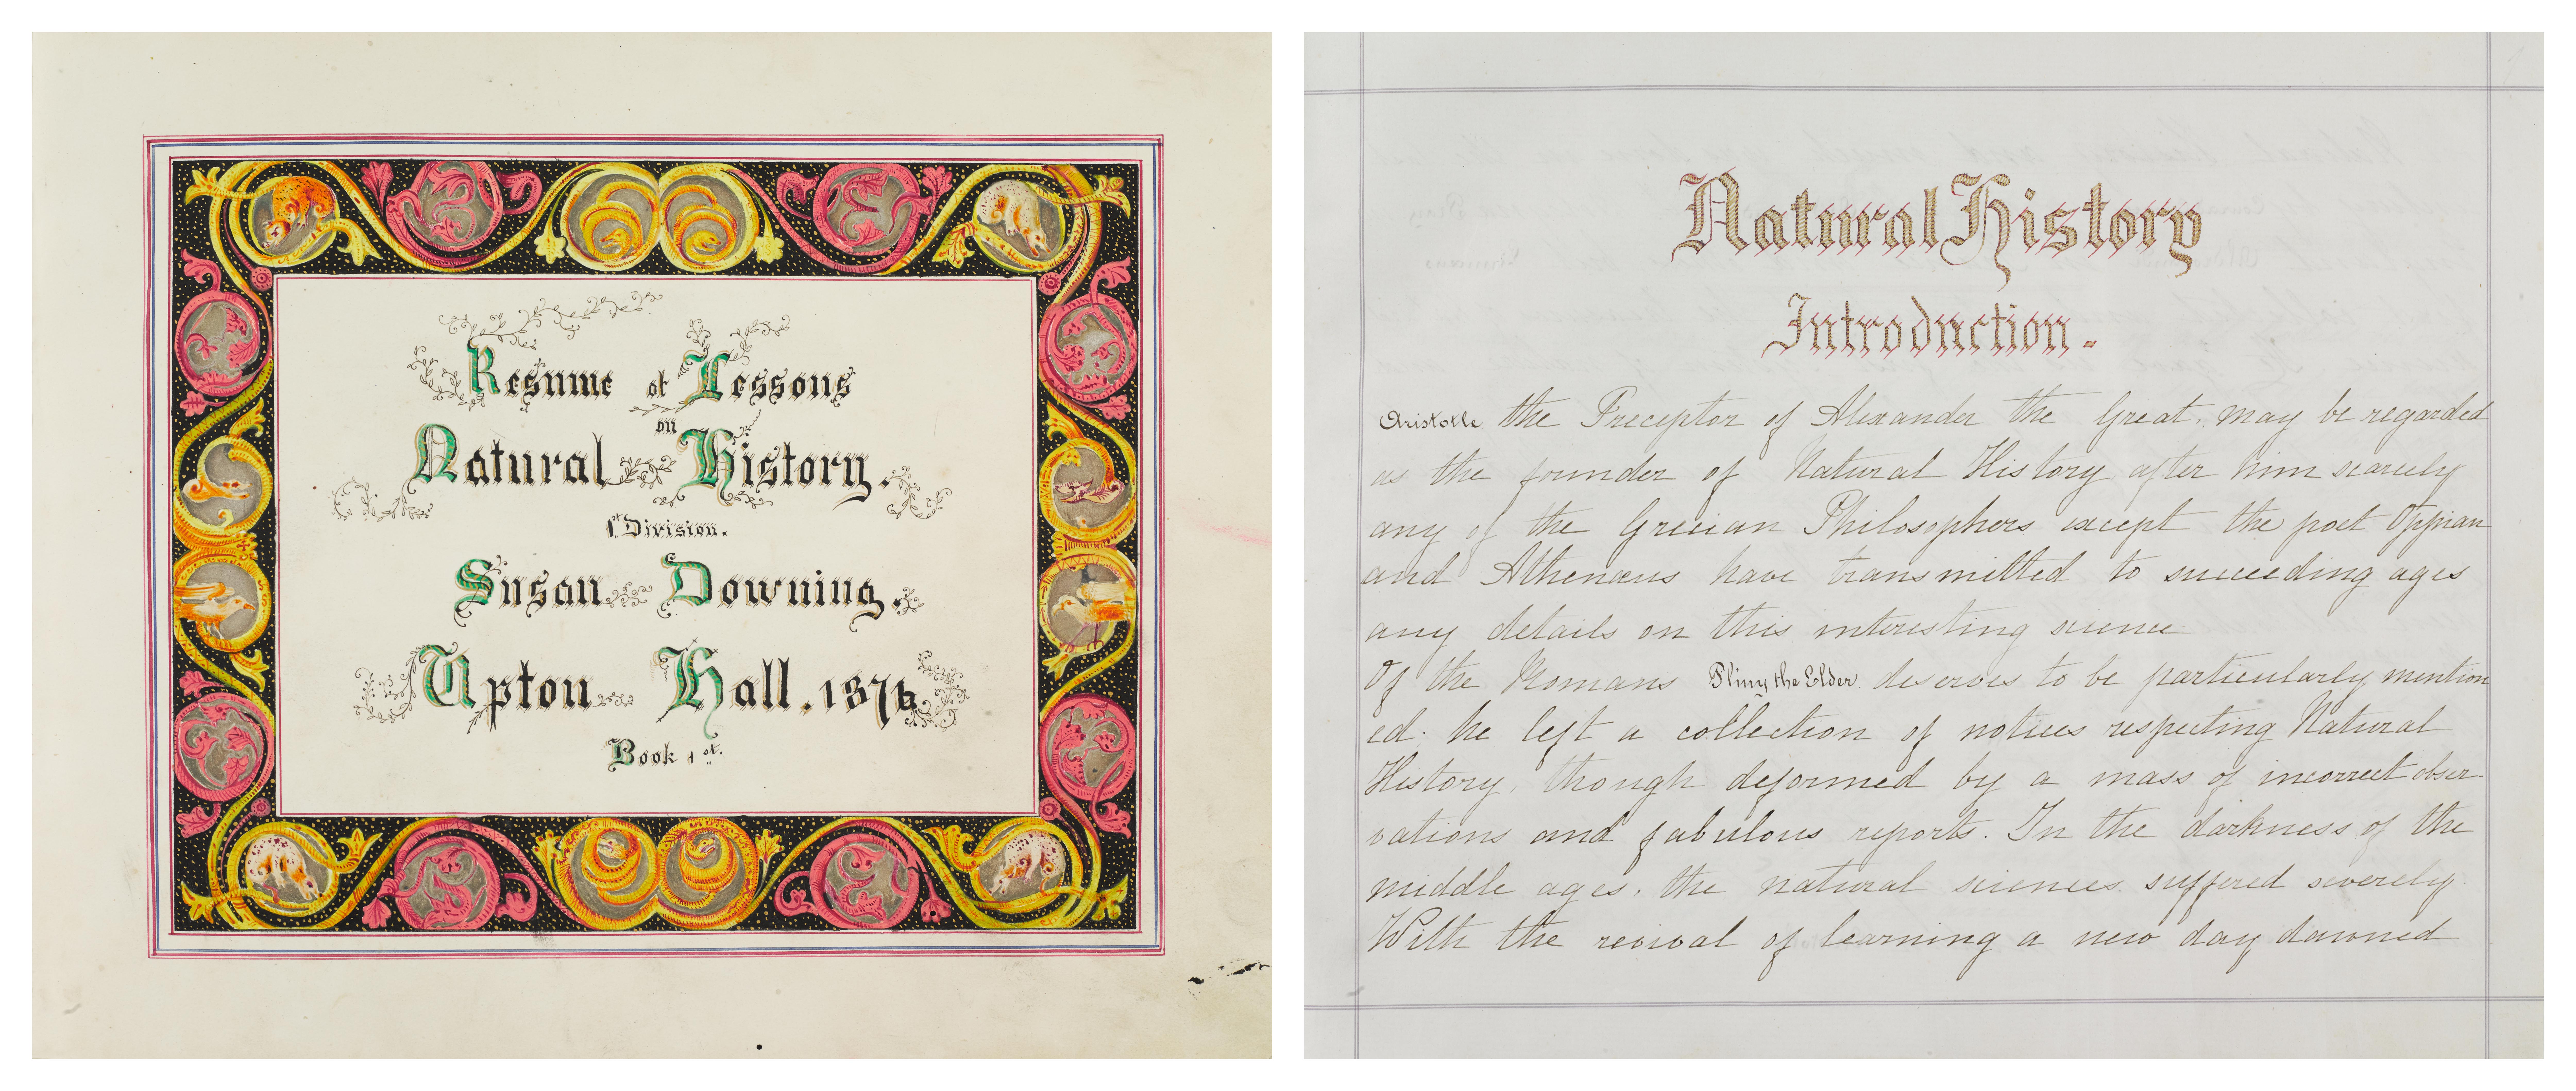 Resume of Lessons
on
Natural History.
1st Division.
Susan Downing.
Upton Hall. 1876
Book 1st.
Natural History
Introduction.
Aristotle the Preceptor of Alexander the Great. may be regarded
as the founder of Natural History after him scarcely
any of the Grecian Philosophers except the poet Oppian
and Athenæus have transmitted to succeeding ages
any details on this interesting science
Of the Romans Pliny the Elder. deserves to be particularly mention
ed. he left a collection of notices respecting Natural
History, though deformed by a mass of incorrect obser
vations and fabulous reports. In the darkness of the
middle ages. the natural sciences suffered severely.
With the revival of learning a new day dawned